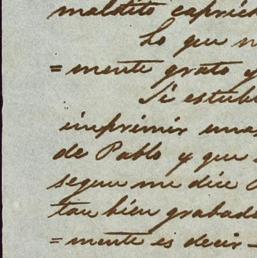 maldito capric
Lo que n
=mente grato y
Si estub
imprimir una
de Pablo y que
segun me dice
tan bien grabad
=mente es decir -